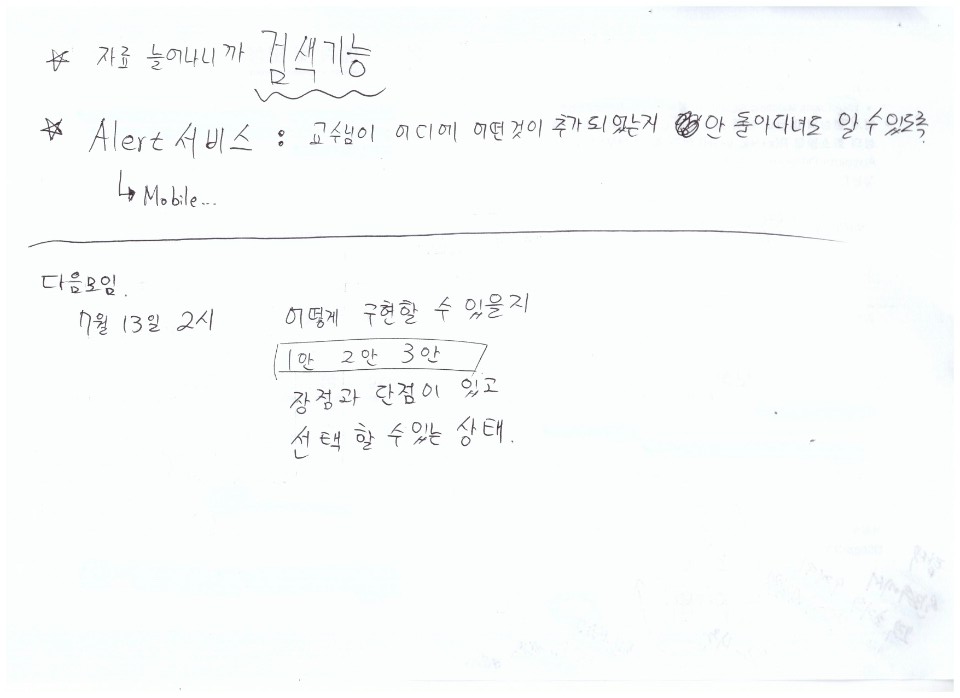 ☆ 자료 늘어나니까 검색기능
☆ Alert 서비스 : 교수님이 어디에 어떤것이 추가되있는지 안 돌아다녀도 알 수 있도록
↳ Mobile...
다음모임.
7월 13일 2시
어떻게 구현할 수 있을지
1안 2안 3안
장점과 단점이 있고
선택 할 수 있는 상태.